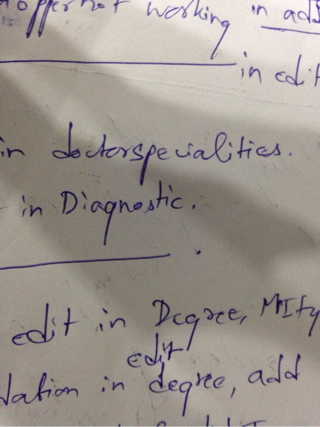 not working in add
in edit
in doctorspecialities.
in Diagnostic.
edit in Degree,
edit
dation in degree, add